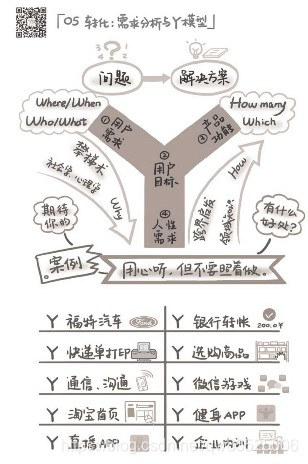 「05 转化：需求分析与Y模型」
问题
解决方案
Where/When
Who/What
How many
Which
①用户
需求
③产品
功能
②
用户
目标
④
人性
需求
社会学、心理学
Why
How
跨界启发
领域知识
期待
你的
案例
有什么
好处?
用心听，但不要照着做。
Y 福特汽车
Ford
Y 银行转账
200.0¥
Y 快递单打印
Y 选购商品
Y 通信、沟通
Y 微信游戏
Y 淘宝首页
Y 健身APP
Y 直播APP
Y 企业内训